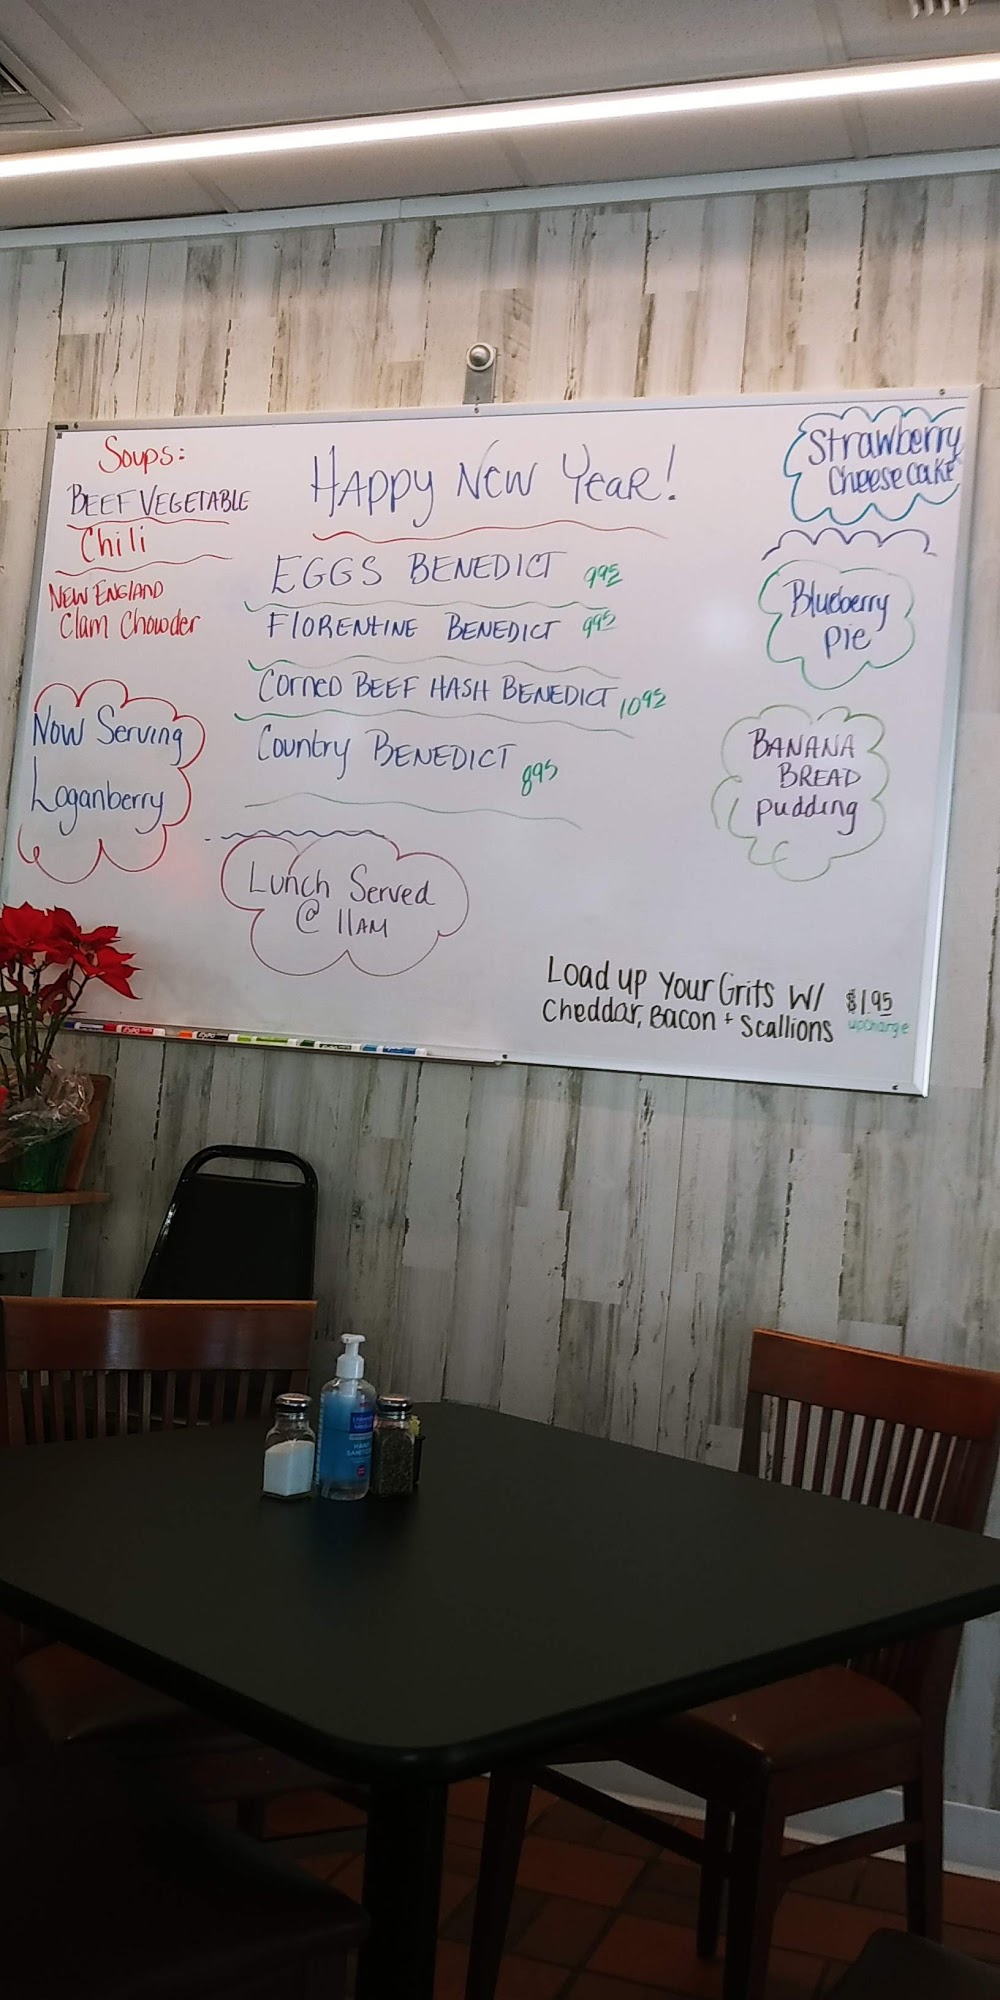 Soups:
BEEF VEGETABLE
Chili
NEW ENGLAND
Clam Chowder
Now Serving
Loganberry
HAppy NEW YEAR!
EGGS BENEDICT 995
FLORENTINE BENEDICT 995
CORNED BEEF HASH BENEDICT 1095
Country BENEDICT 895
LUNCH Served
@ 11AM
Strawberry
CheesecAKE
Blueberry
Pie
BANANA
BREAD
pudding
Load up Your Grits W/ $1.95
Cheddar, Bacon + Scallions upcharge
HAND